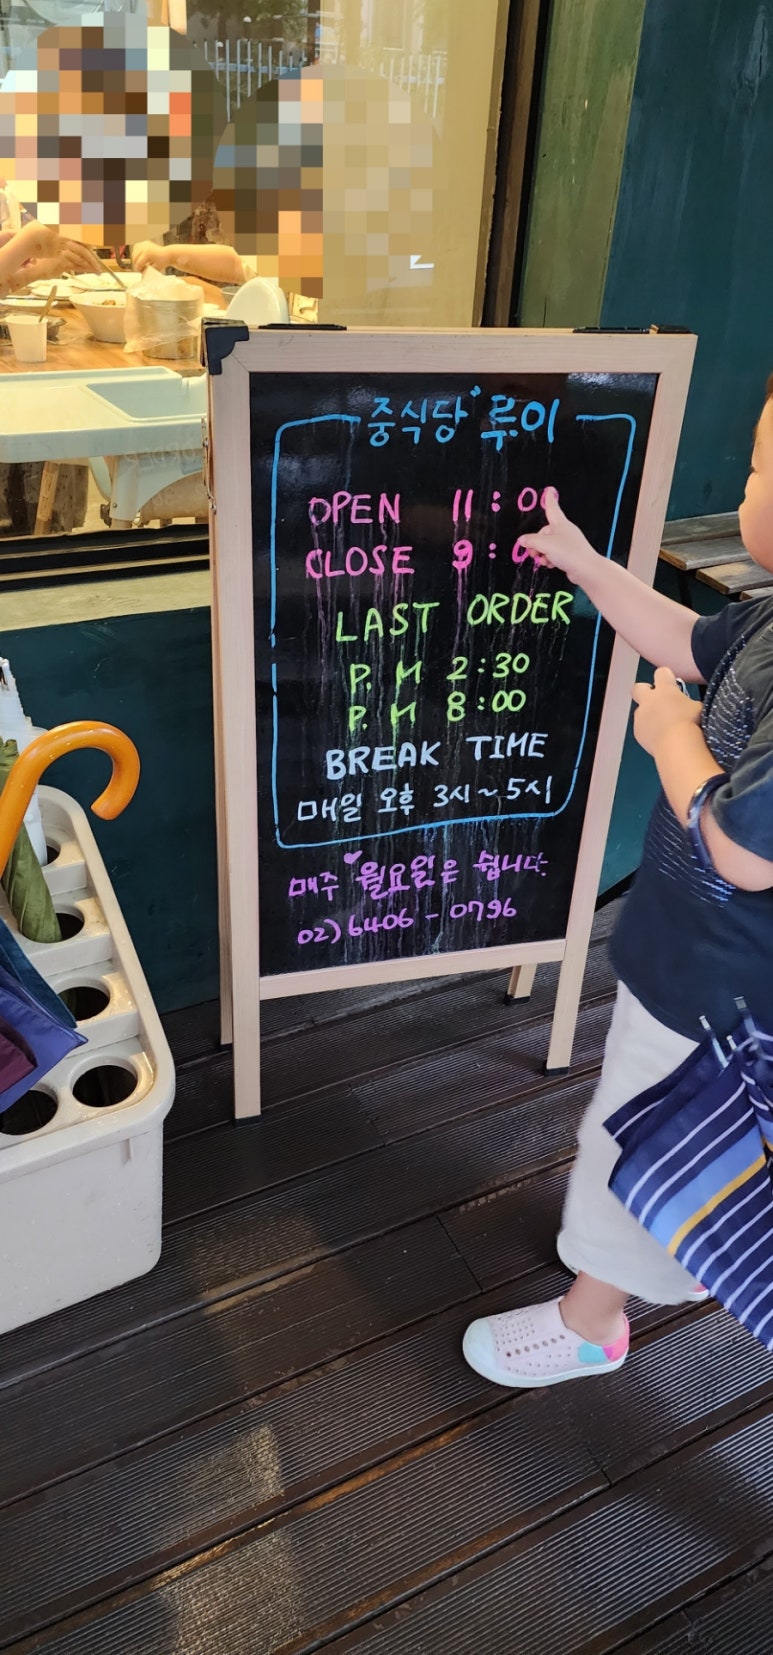 중식당 루이
OPEN 11:00
CLOSE 9:00
LAST ORDER
P.M 2:30
P.M 8:00
BREAK TIME
매일 오후 3시~5시
매주 월요일은 쉽니다.
02)6406-0796